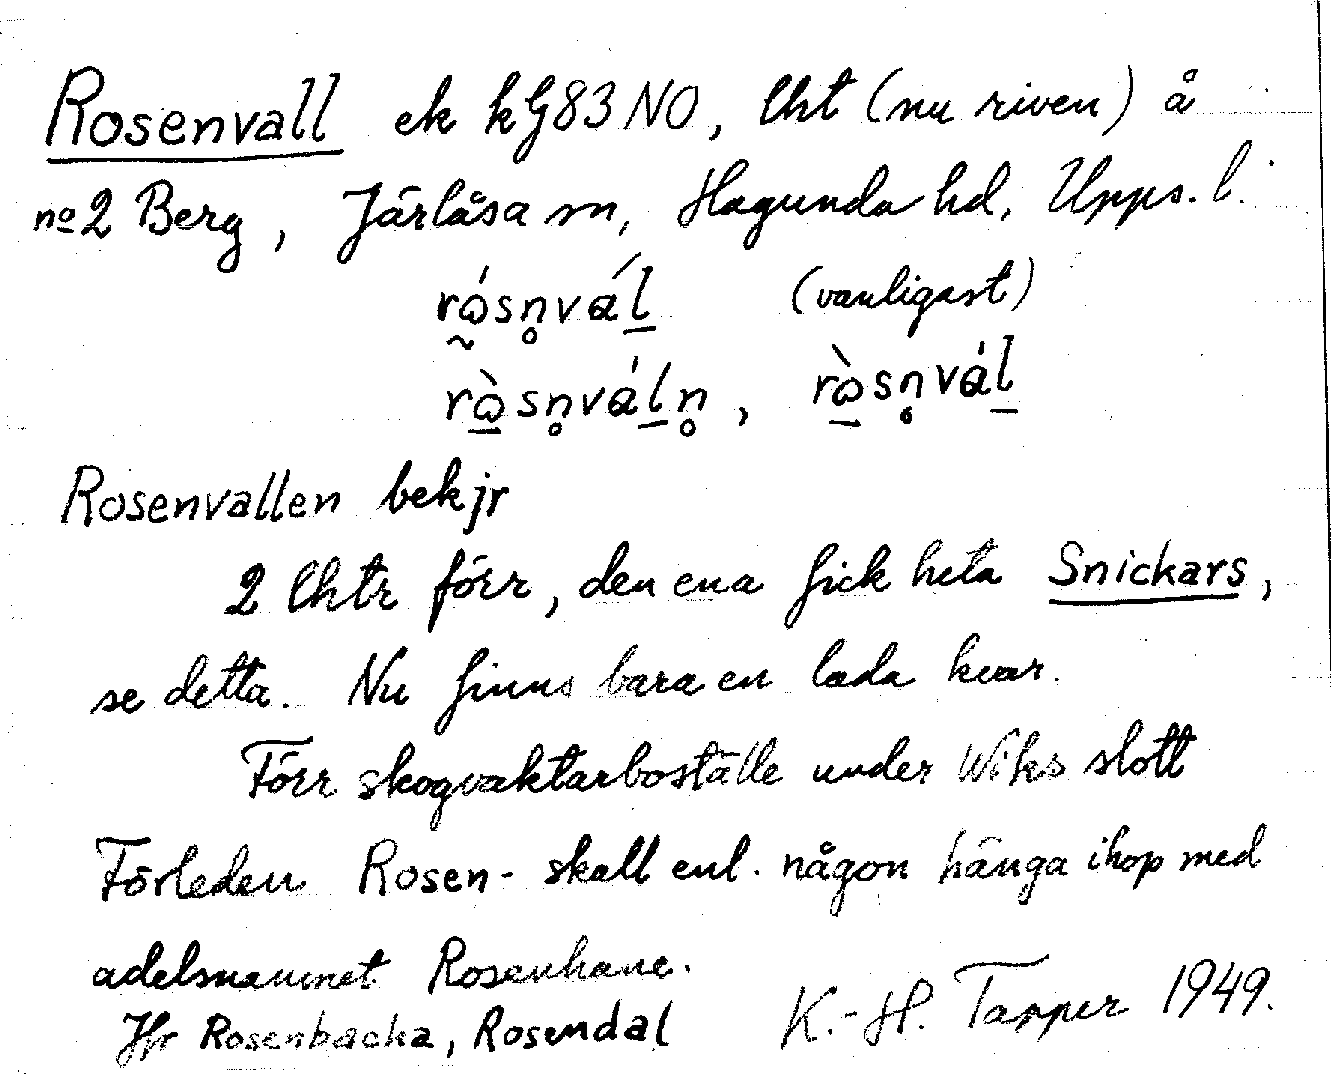 Rosenvall ek kG83NO, lht (nu riven) å
no2 Berg, Järlåsa sn, Hagunda hd, Upps. l.
rɷ́sn̥vál (vanligast)
rɷ̀sn̥váln̥, rɷ̀sn̥vál
Rosenvallen bekjr
2 lhtr förr, den ena fick heta Snickars,
se detta. Nu finns bara en lada kvar.
Förr skogvaktarboställe under Wiks slott
Förleden Rosen- skall enl. någon hänga ihop med
adelsnamnet Rosenhane.
Jfr Rosenbacka, Rosendal K.-H. Tapper 1949.